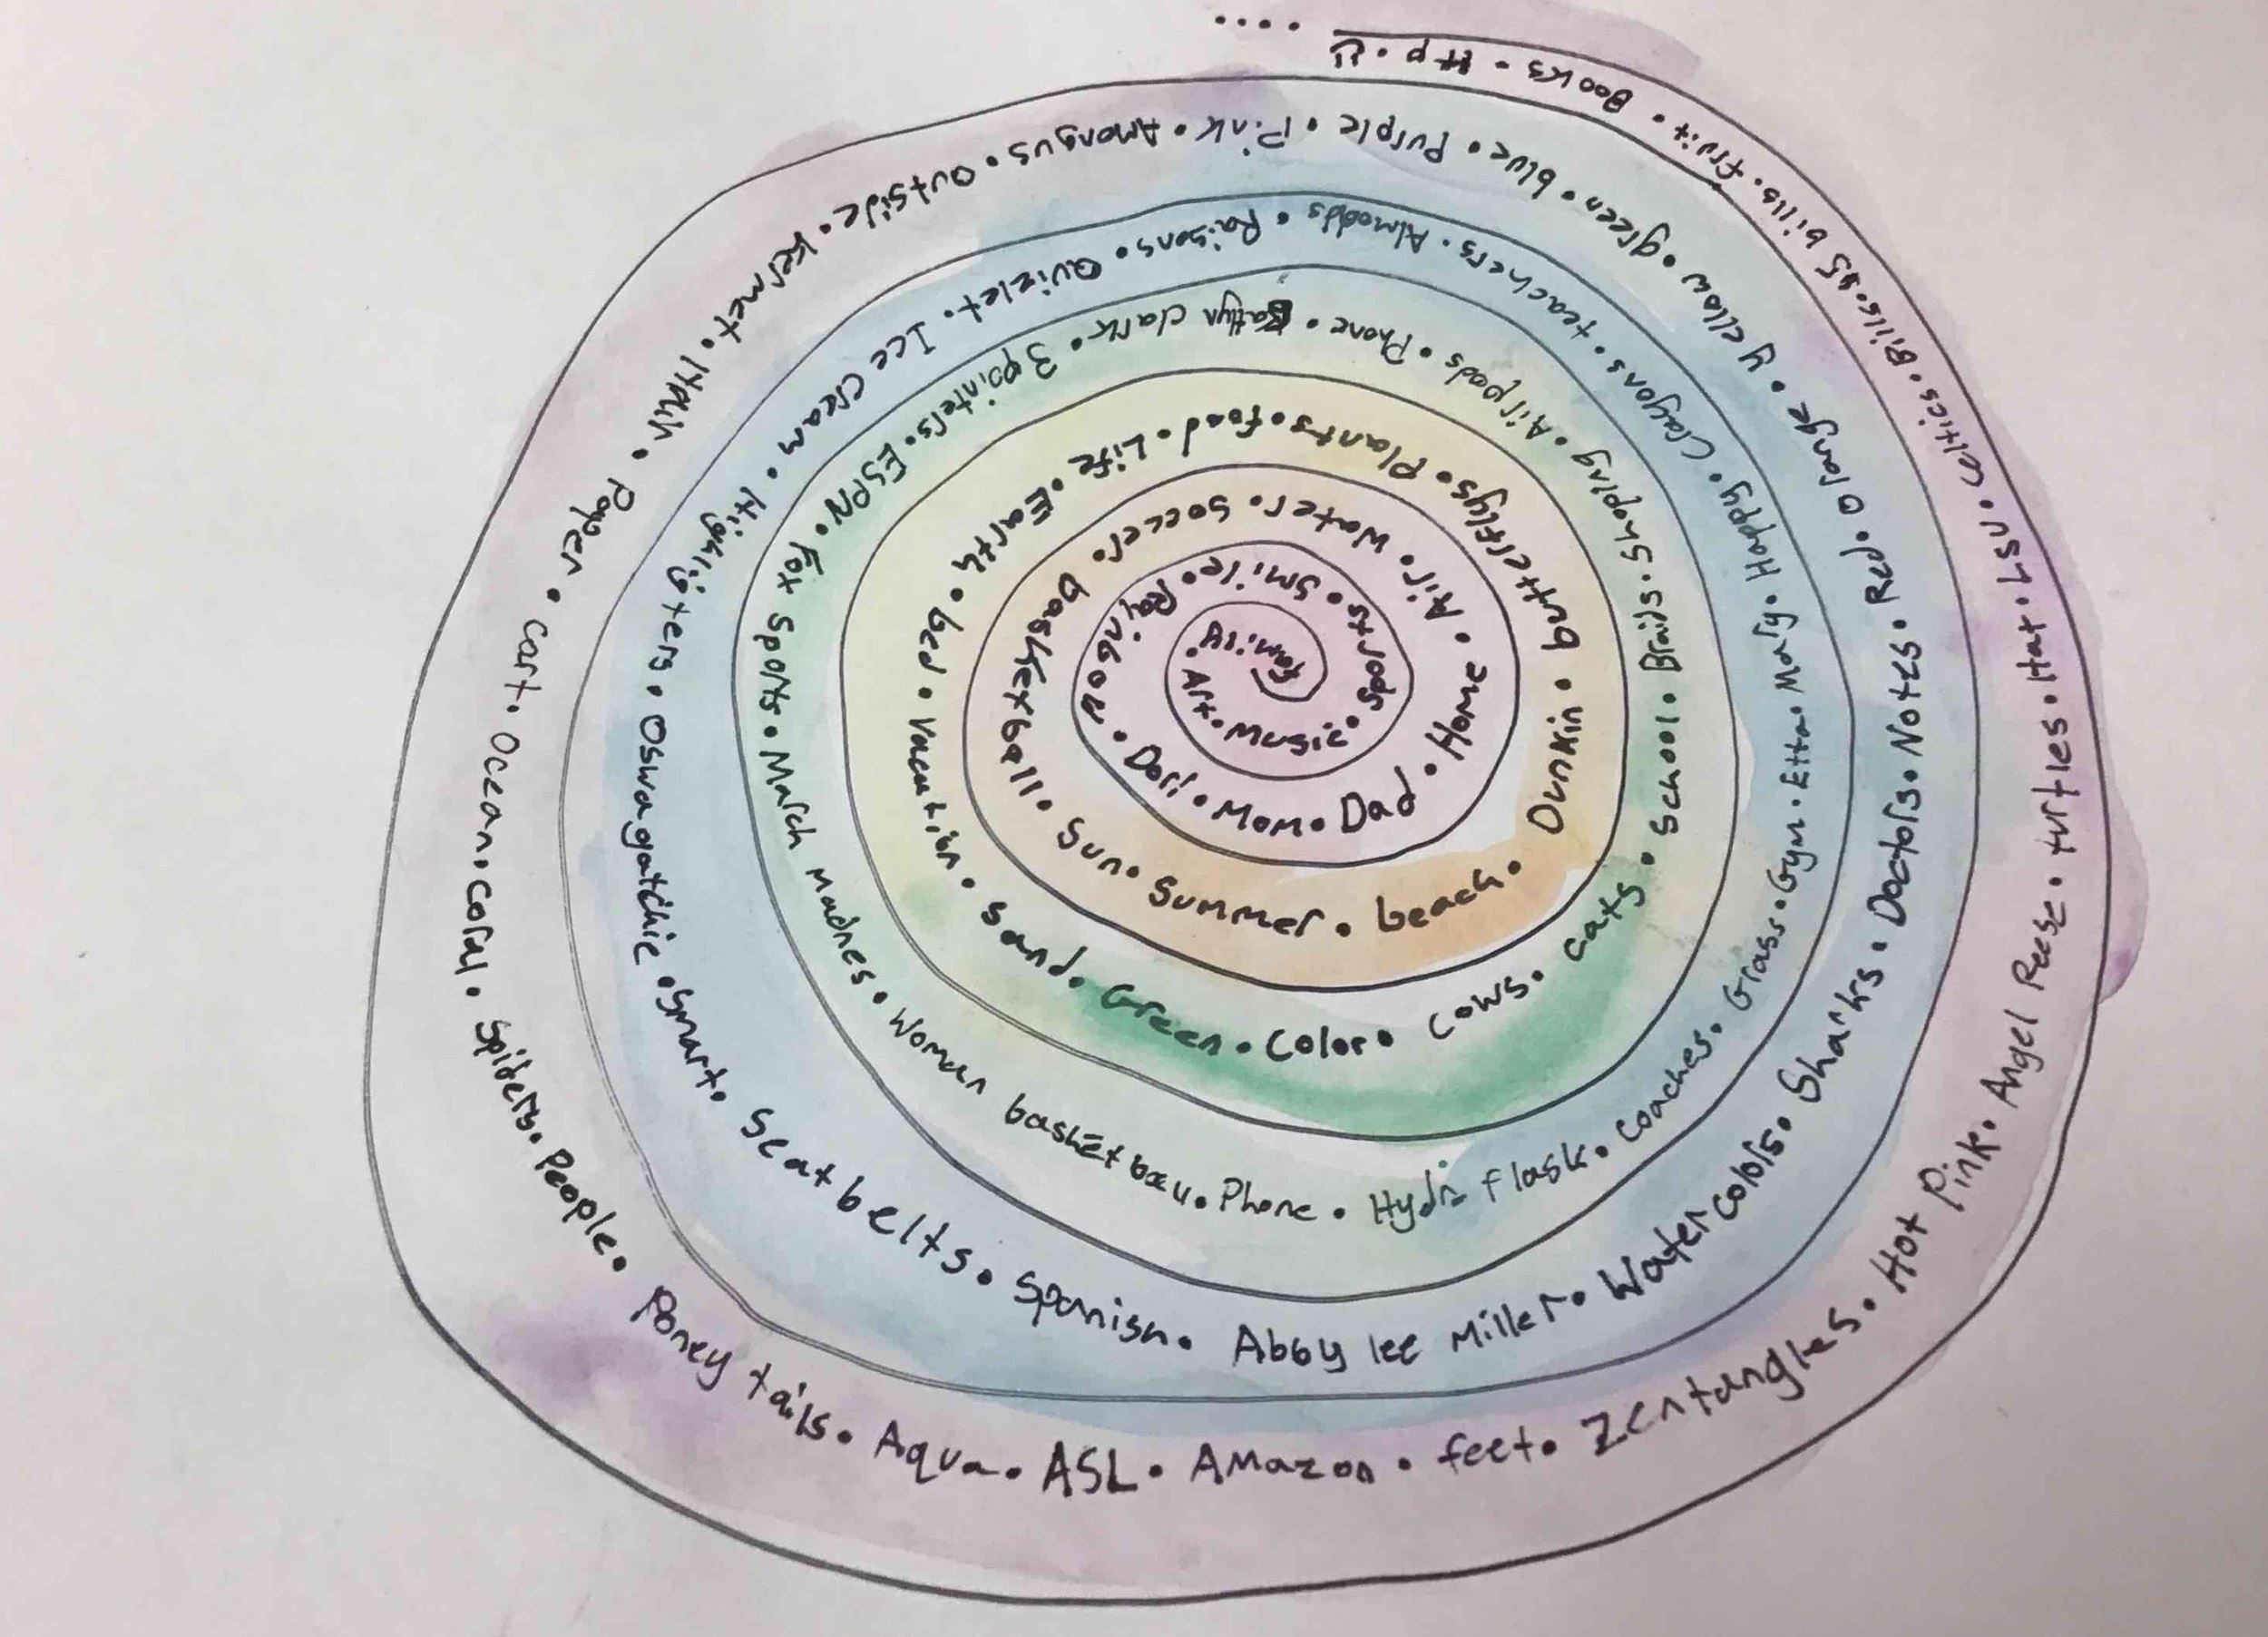 family. Art. Music. Sports. Smile. Rainbow. Mom. Dad. Home. Air. Water. Soccer. basketball. Sun. Summer. beach. Dunkin. butterflys. Plants. food. Life. Earth. bed. Sand. Green. Color. Cows. cats. School. Braids. Shoping. Airpods. Phone. Clark. 3 pointers. ESPN. Fox Sports. March Madnes. Woman basketball. Phone. Hydro flask. Coaches. Grass. Gym. Etta. Mary. Happy. Crayons. teachers. Almodds. Raisons. Quizlet. Ice Cream. Highligters. Oswagatchie. Smart. Seat belts. Spanish. Abby lee Miller. Water colors. Sharks. Doctors. Notes. Red. Orange. yellow. green. blue. Purple. Pink. Amongus. Outside. Kermet. Paper. cart. Ocean. coral. Spiders. People. Poney tails. Aqua. ASL. Amazon. feet. Zentangles. Hot Pink. Angel Reese. turtles. Hat. LSU. Celtics. Bills. $5 bills. fruit. Books. Hp. ....